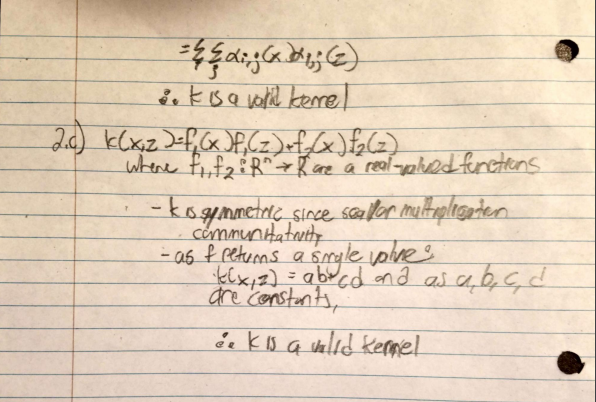 = Σ Σ αi,j(x) αi,j(z)
i j
∴ k is a valid kernel
2.c) k(x,z) = f₁(x)f₁(z) + f₂(x)f₂(z)
where f₁, f₂ : Rⁿ → R are a real-valued functions
- k is symmetric since scallar multiplication
communitativity
- as f returns a single value:
k(x,z) = ab + cd and as a, b, c, d
are constants,
∴ k is a valid kernel